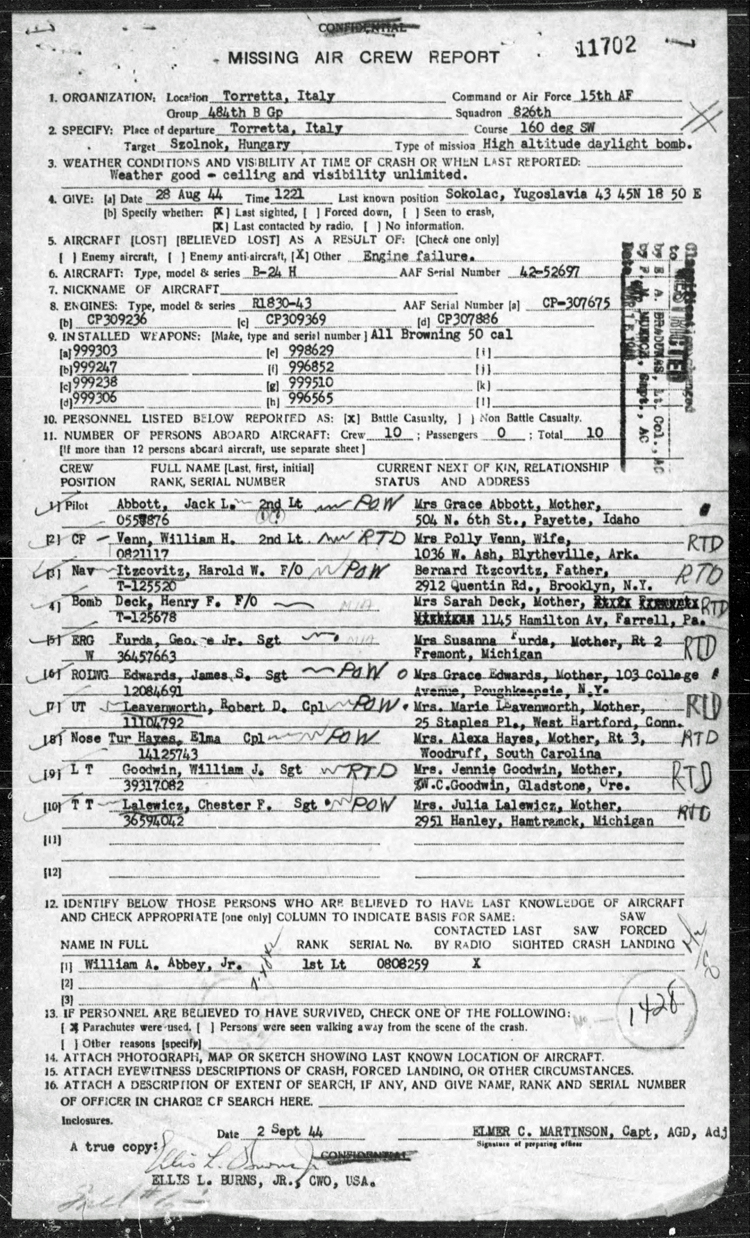 CONFIDENTIAL
MISSING AIR CREW REPORT
11702
1. ORGANIZATION: Location Torretta, Italy Command or Air Force 15th AF
Group 484th B Gp Squadron 826th
2. SPECIFY: Place of departure Torretta, Italy Course 160 deg SW
Target Szolnok, Hungary Type of mission High altitude daylight bomb.
3. WEATHER CONDITIONS AND VISIBILITY AT TIME OF CRASH OR WHEN LAST REPORTED:
Weather good - ceiling and visibility unlimited.
4. GIVE: [a] Date 28 Aug 44 Time 1221 Last known position Sokolac, Yugoslavia 43 45N 18 50 E
[b] Specify whether: [X] Last sighted, [ ] Forced down, [ ] Seen to crash,
[X] Last contacted by radio, [ ] No information.
5. AIRCRAFT [LOST] [BELIEVED LOST] AS A RESULT OF: [Check one only]
[ ] Enemy aircraft, [ ] Enemy anti-aircraft, [X] Other Engine failure.
6. AIRCRAFT: Type, model & series B-24 H AAF Serial Number 42-52697
7. NICKNAME OF AIRCRAFT
8. ENGINES: Type, model & series R1830-43 AAF Serial Number [a] CP-307675
[b] CP309236 [c] CP309369 [d] CP307886
9. INSTALLED WEAPONS: [Make, type and serial number] All Browning 50 cal
[a] 999303 [e] 998629 [i]
[b] 999247 [f] 996852 [j]
[c] 999238 [g] 999510 [k]
[d] 999306 [h] 996565 [l]
10. PERSONNEL LISTED BELOW REPORTED AS: [X] Battle Casualty, [ ] Non Battle Casualty.
11. NUMBER OF PERSONS ABOARD AIRCRAFT: Crew 10 ; Passengers 0 ; Total 10
[If more than 12 persons aboard aircraft, use separate sheet]
CREW FULL NAME [Last, first, initial] CURRENT NEXT OF KIN, RELATIONSHIP
POSITION RANK, SERIAL NUMBER STATUS AND ADDRESS
[1] Pilot Abbott, Jack L. 2nd Lt POW Mrs Grace Abbott, Mother,
504 N. 6th St., Payette, Idaho
[2] CP Venn, William H. 2nd Lt RTD Mrs Polly Venn, Wife, RTD
0821117 1036 W. Ash, Blytheville, Ark.
[3] Nav Itzcovitz, Harold W. F/O POW Bernard Itzcovitz, Father, RTD
T-125520 2912 Quentin Rd., Brooklyn, N.Y.
[4] Bomb Deck, Henry F. F/O MIA Mrs Sarah Deck, Mother, RTD
T-125678 1145 Hamilton Av, Farrell, Pa.
[5] ERG Furda, George Jr. Sgt MIA Mrs Susanna Furda, Mother, Rt 2 RTD
W 36457663 Fremont, Michigan
[6] ROLWG Edwards, James S. Sgt POW Mrs Grace Edwards, Mother, 103 College
12084691 Avenue, Poughkeepsie, N.Y.
[7] UT Leavenworth, Robert D. Cpl POW Mrs. Marie Leavenworth, Mother, RTD
11104792 25 Staples Pl., West Hartford, Conn.
[8] Nose Tur Hayes, Elma Cpl POW Mrs. Alexa Hayes, Mother, Rt 3, RTD
14125743 Woodruff, South Carolina
[9] L T Goodwin, William J. Sgt RTD Mrs. Jennie Goodwin, Mother, RTD
39317082 %W.C.Goodwin, Gladstone, Ore.
[10] T T Lalewicz, Chester F. Sgt POW Mrs. Julia Lalewicz, Mother, RTD
36594042 2951 Hanley, Hamtramck, Michigan
[11]
[12]
12. IDENTIFY BELOW THOSE PERSONS WHO ARE BELIEVED TO HAVE LAST KNOWLEDGE OF AIRCRAFT
AND CHECK APPROPRIATE [one only] COLUMN TO INDICATE BASIS FOR SAME: SAW
CONTACTED LAST SAW FORCED
NAME IN FULL RANK SERIAL No. BY RADIO SIGHTED CRASH LANDING
[1] William A. Abbey, Jr. 1st Lt 0808259 X
[2]
[3]
13. IF PERSONNEL ARE BELIEVED TO HAVE SURVIVED, CHECK ONE OF THE FOLLOWING:
[X] Parachutes were used, [ ] Persons were seen walking away from the scene of the crash.
[ ] Other reasons [specify]
1428
14. ATTACH PHOTOGRAPH, MAP OR SKETCH SHOWING LAST KNOWN LOCATION OF AIRCRAFT.
15. ATTACH EYEWITNESS DESCRIPTIONS OF CRASH, FORCED LANDING, OR OTHER CIRCUMSTANCES.
16. ATTACH A DESCRIPTION OF EXTENT OF SEARCH, IF ANY, AND GIVE NAME, RANK AND SERIAL NUMBER
OF OFFICER IN CHARGE OF SEARCH HERE.
Inclosures.
Date 2 Sept 44 ELMER C. MARTINSON, Capt, AGD, Adj
Signature of preparing officer
A true copy:
CONFIDENTIAL
Ellis L. Burns Jr
ELLIS L. BURNS, JR., CWO, USA.